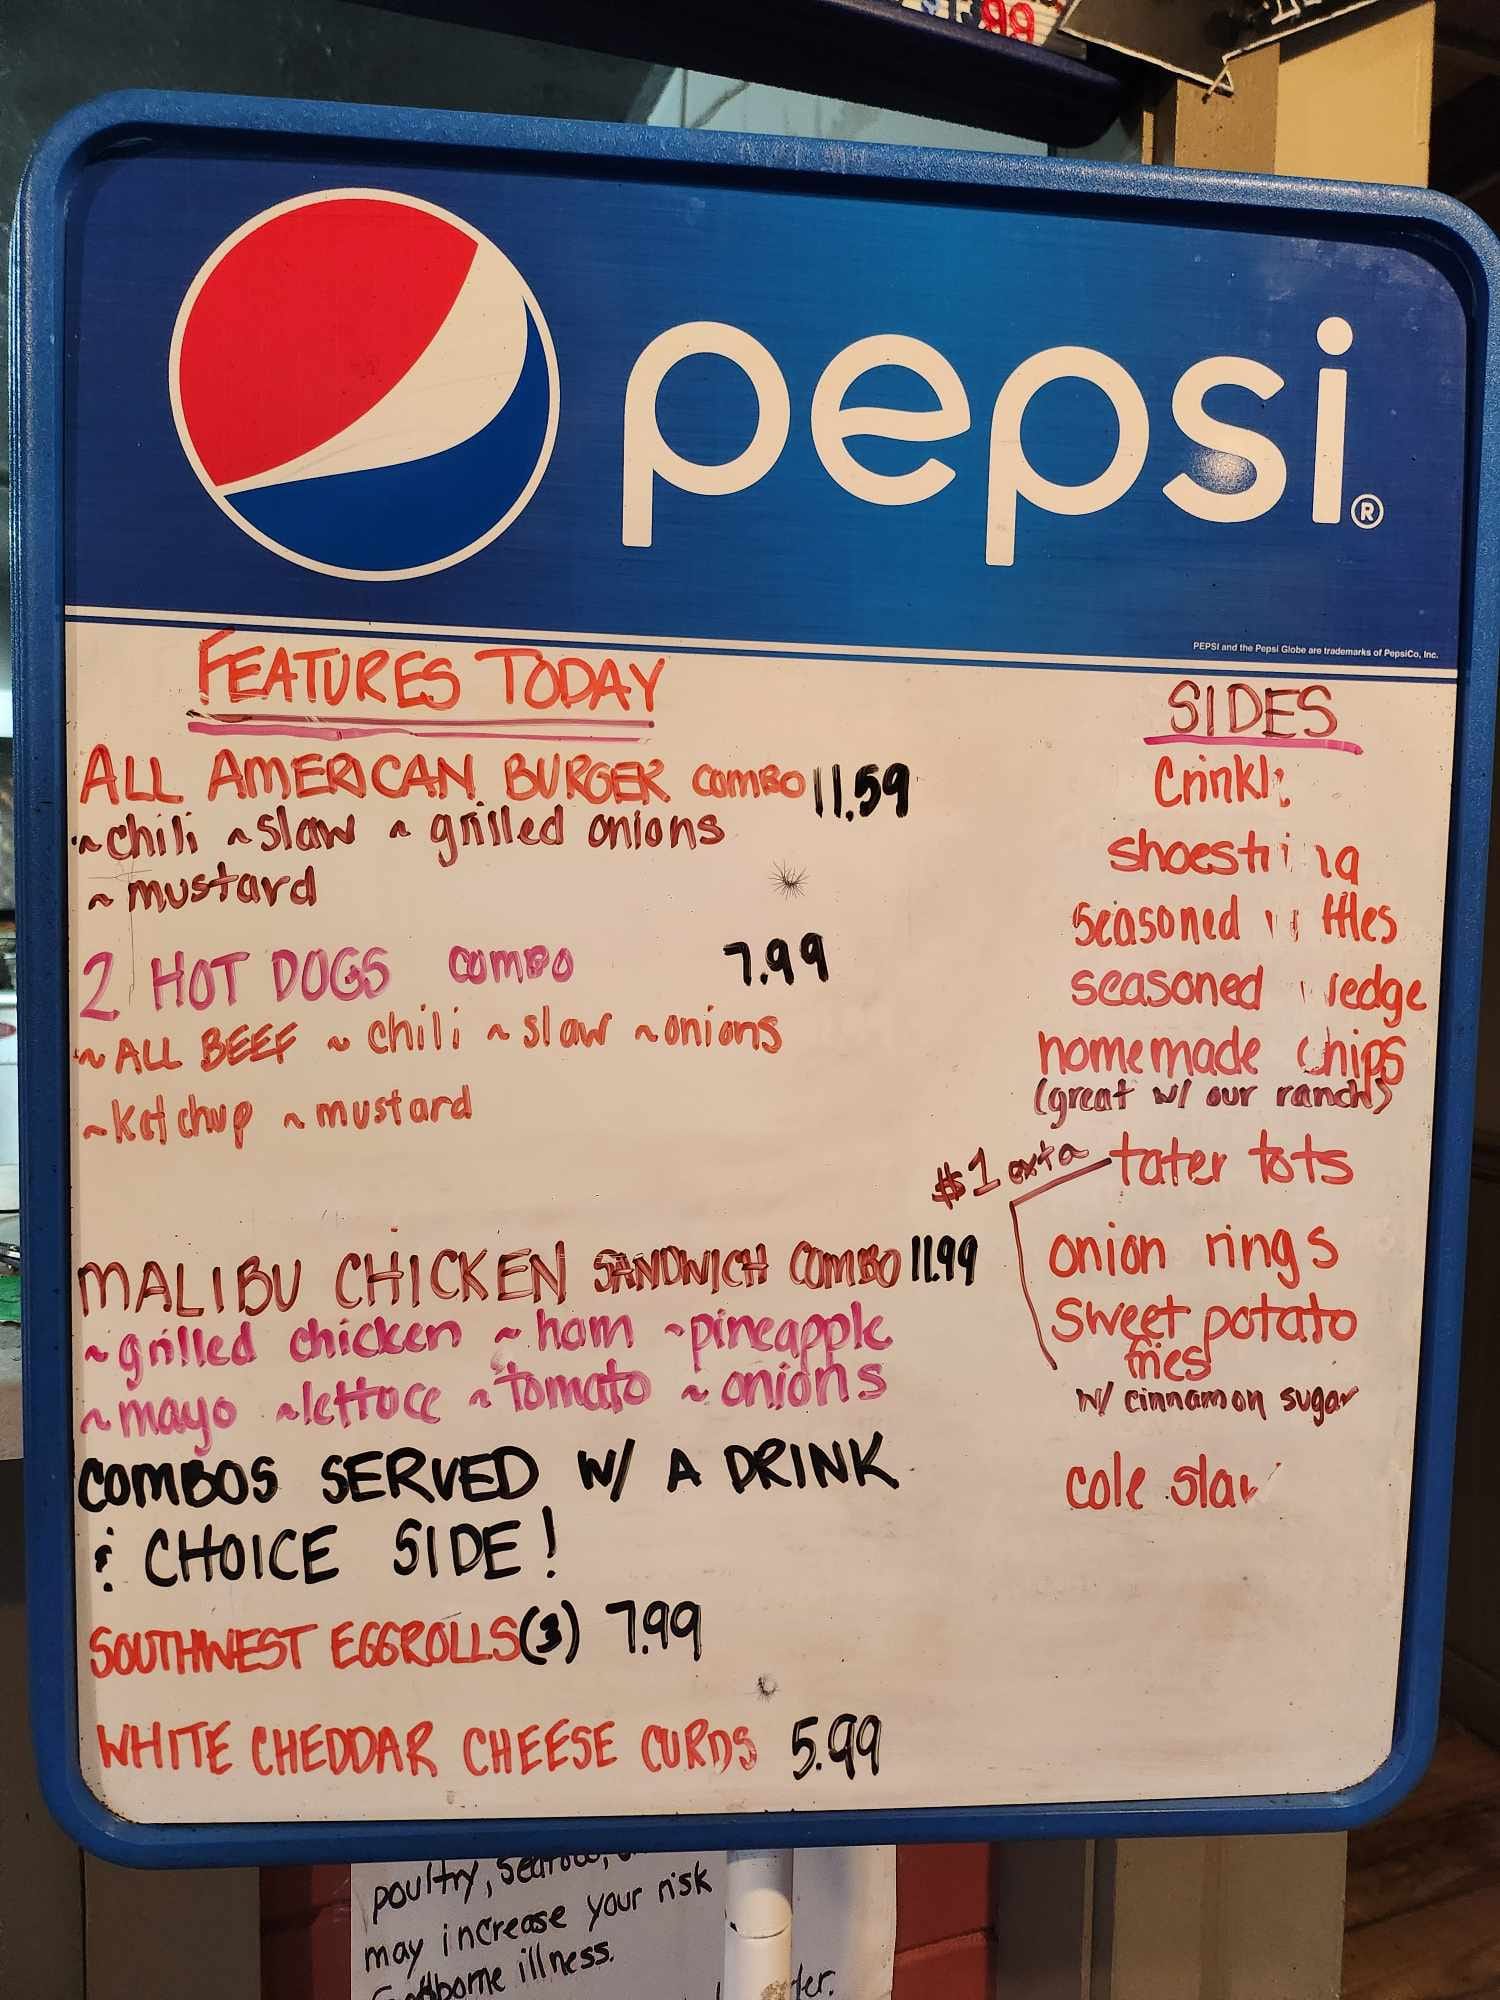 pepsi®
PEPSI and the Pepsi Globe are trademarks of PepsiCo, Inc.
FEATURES TODAY
ALL AMERICAN BURGER COMBO 11.59
~chili ~slaw ~ grilled onions
~ mustard
2 HOT DOGS COMBO 7.99
~ ALL BEEF ~ chili ~ slaw ~onions
~ketchup ~ mustard
MALIBU CHICKEN SANDWICH COMBO 11.99
~grilled chicken ~ ham ~pineapple
~mayo ~lettuce ~ tomato ~ onions
COMBOS SERVED W/ A DRINK
& CHOICE SIDE!
SOUTHWEST EGGROLLS (3) 7.99
WHITE CHEDDAR CHEESE CURDS 5.99
SIDES
Crinkl
shoestring
seasoned
seasoned wedge
homemade chips
(great w/ our ranch)
$1 exta tater tots
onion rings
sweet potato
fries
w/ cinnamon sugar
cole slaw
poultry, seafood,
may increase your risk
foodborne illness.